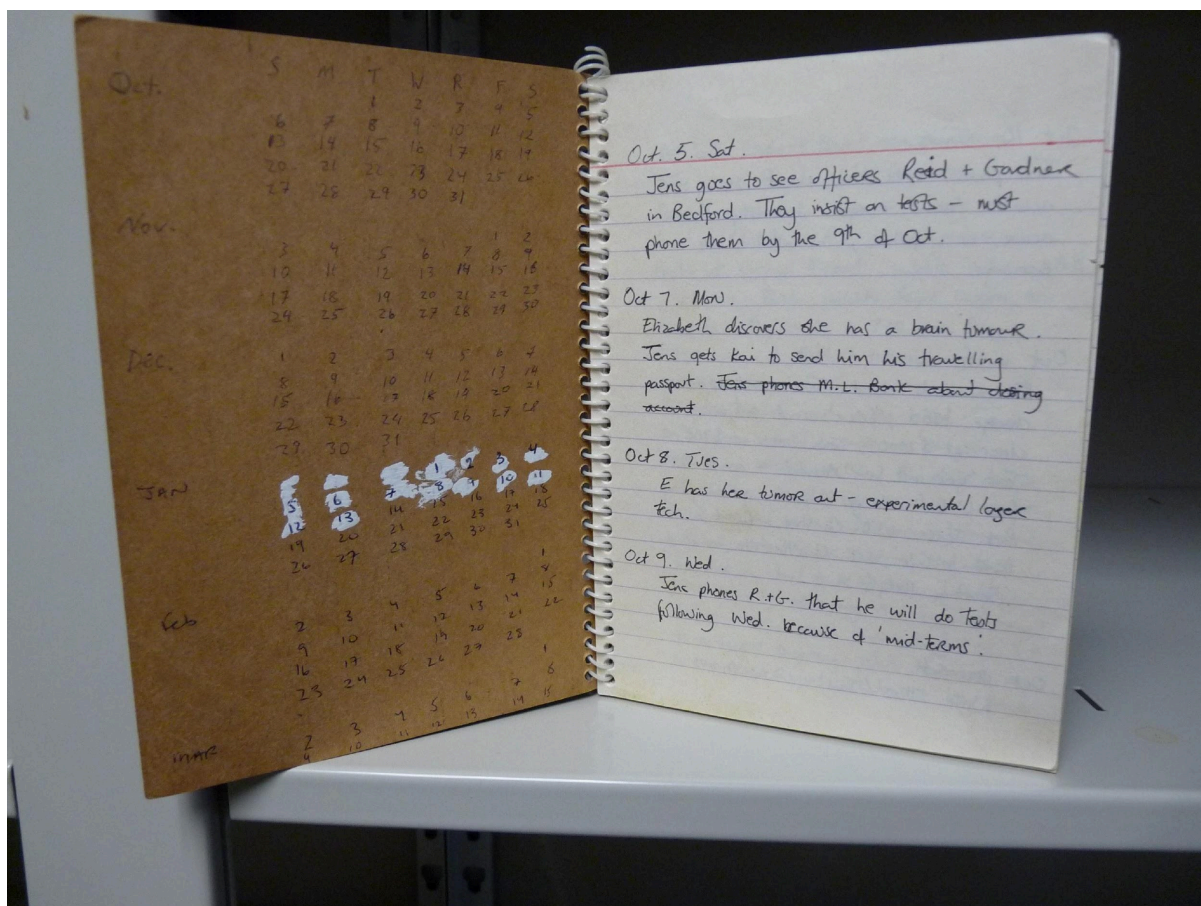 Oct. S M T W R F S
1 2 3 4 5
6 7 8 9 10 11 12
13 14 15 16 17 18 19
20 21 22 23 24 25 26
27 28 29 30 31
Nov.
1 2
3 4 5 6 7 8 9
10 11 12 13 14 15 16
17 18 19 20 21 22 23
24 25 26 27 28 29 30
Dec. 1 2 3 4 5 6 7
8 9 10 11 12 13 14
15 16 17 18 19 20 21
22 23 24 25 26 27 28
29 30 31
JAN 1 2 3 4
5 6 7 8 9 10 11
12 13 14 15 16 17 18
19 20 21 22 23 24 25
26 27 28 29 30 31
Feb 1
2 3 4 5 6 7 8
9 10 11 12 13 14 15
16 17 18 19 20 21 22
23 24 25 26 27 28
MAR 1
2 3 4 5 6 7 8
9 10 11 12 13 14 15
Oct. 5. Sat.
Jens goes to see officers Reid + Gardner
in Bedford. They insist on tests – must
phone them by the 9th of Oct.
Oct 7. Mon.
Elizabeth discovers she has a brain tumour.
Jens gets Kai to send him his travelling
passport. Jens phones M.L. Bank about closing
account.
Oct 8. Tues.
E has her tumor out – experimental lazer
tech.
Oct 9. Wed.
Jens phones R.+G. that he will do tests
following Wed. because of 'mid-terms'.